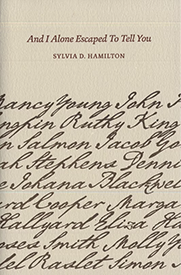 And I Alone Escaped To Tell You
SYLVIA D. HAMILTON
Nancy Young John
Ruthy King
Salmon Jacob
Stephens
Johana Blackwel
Cooper Marga
Hallyard Eliza Ha
Smith Molly
Raslet Simon